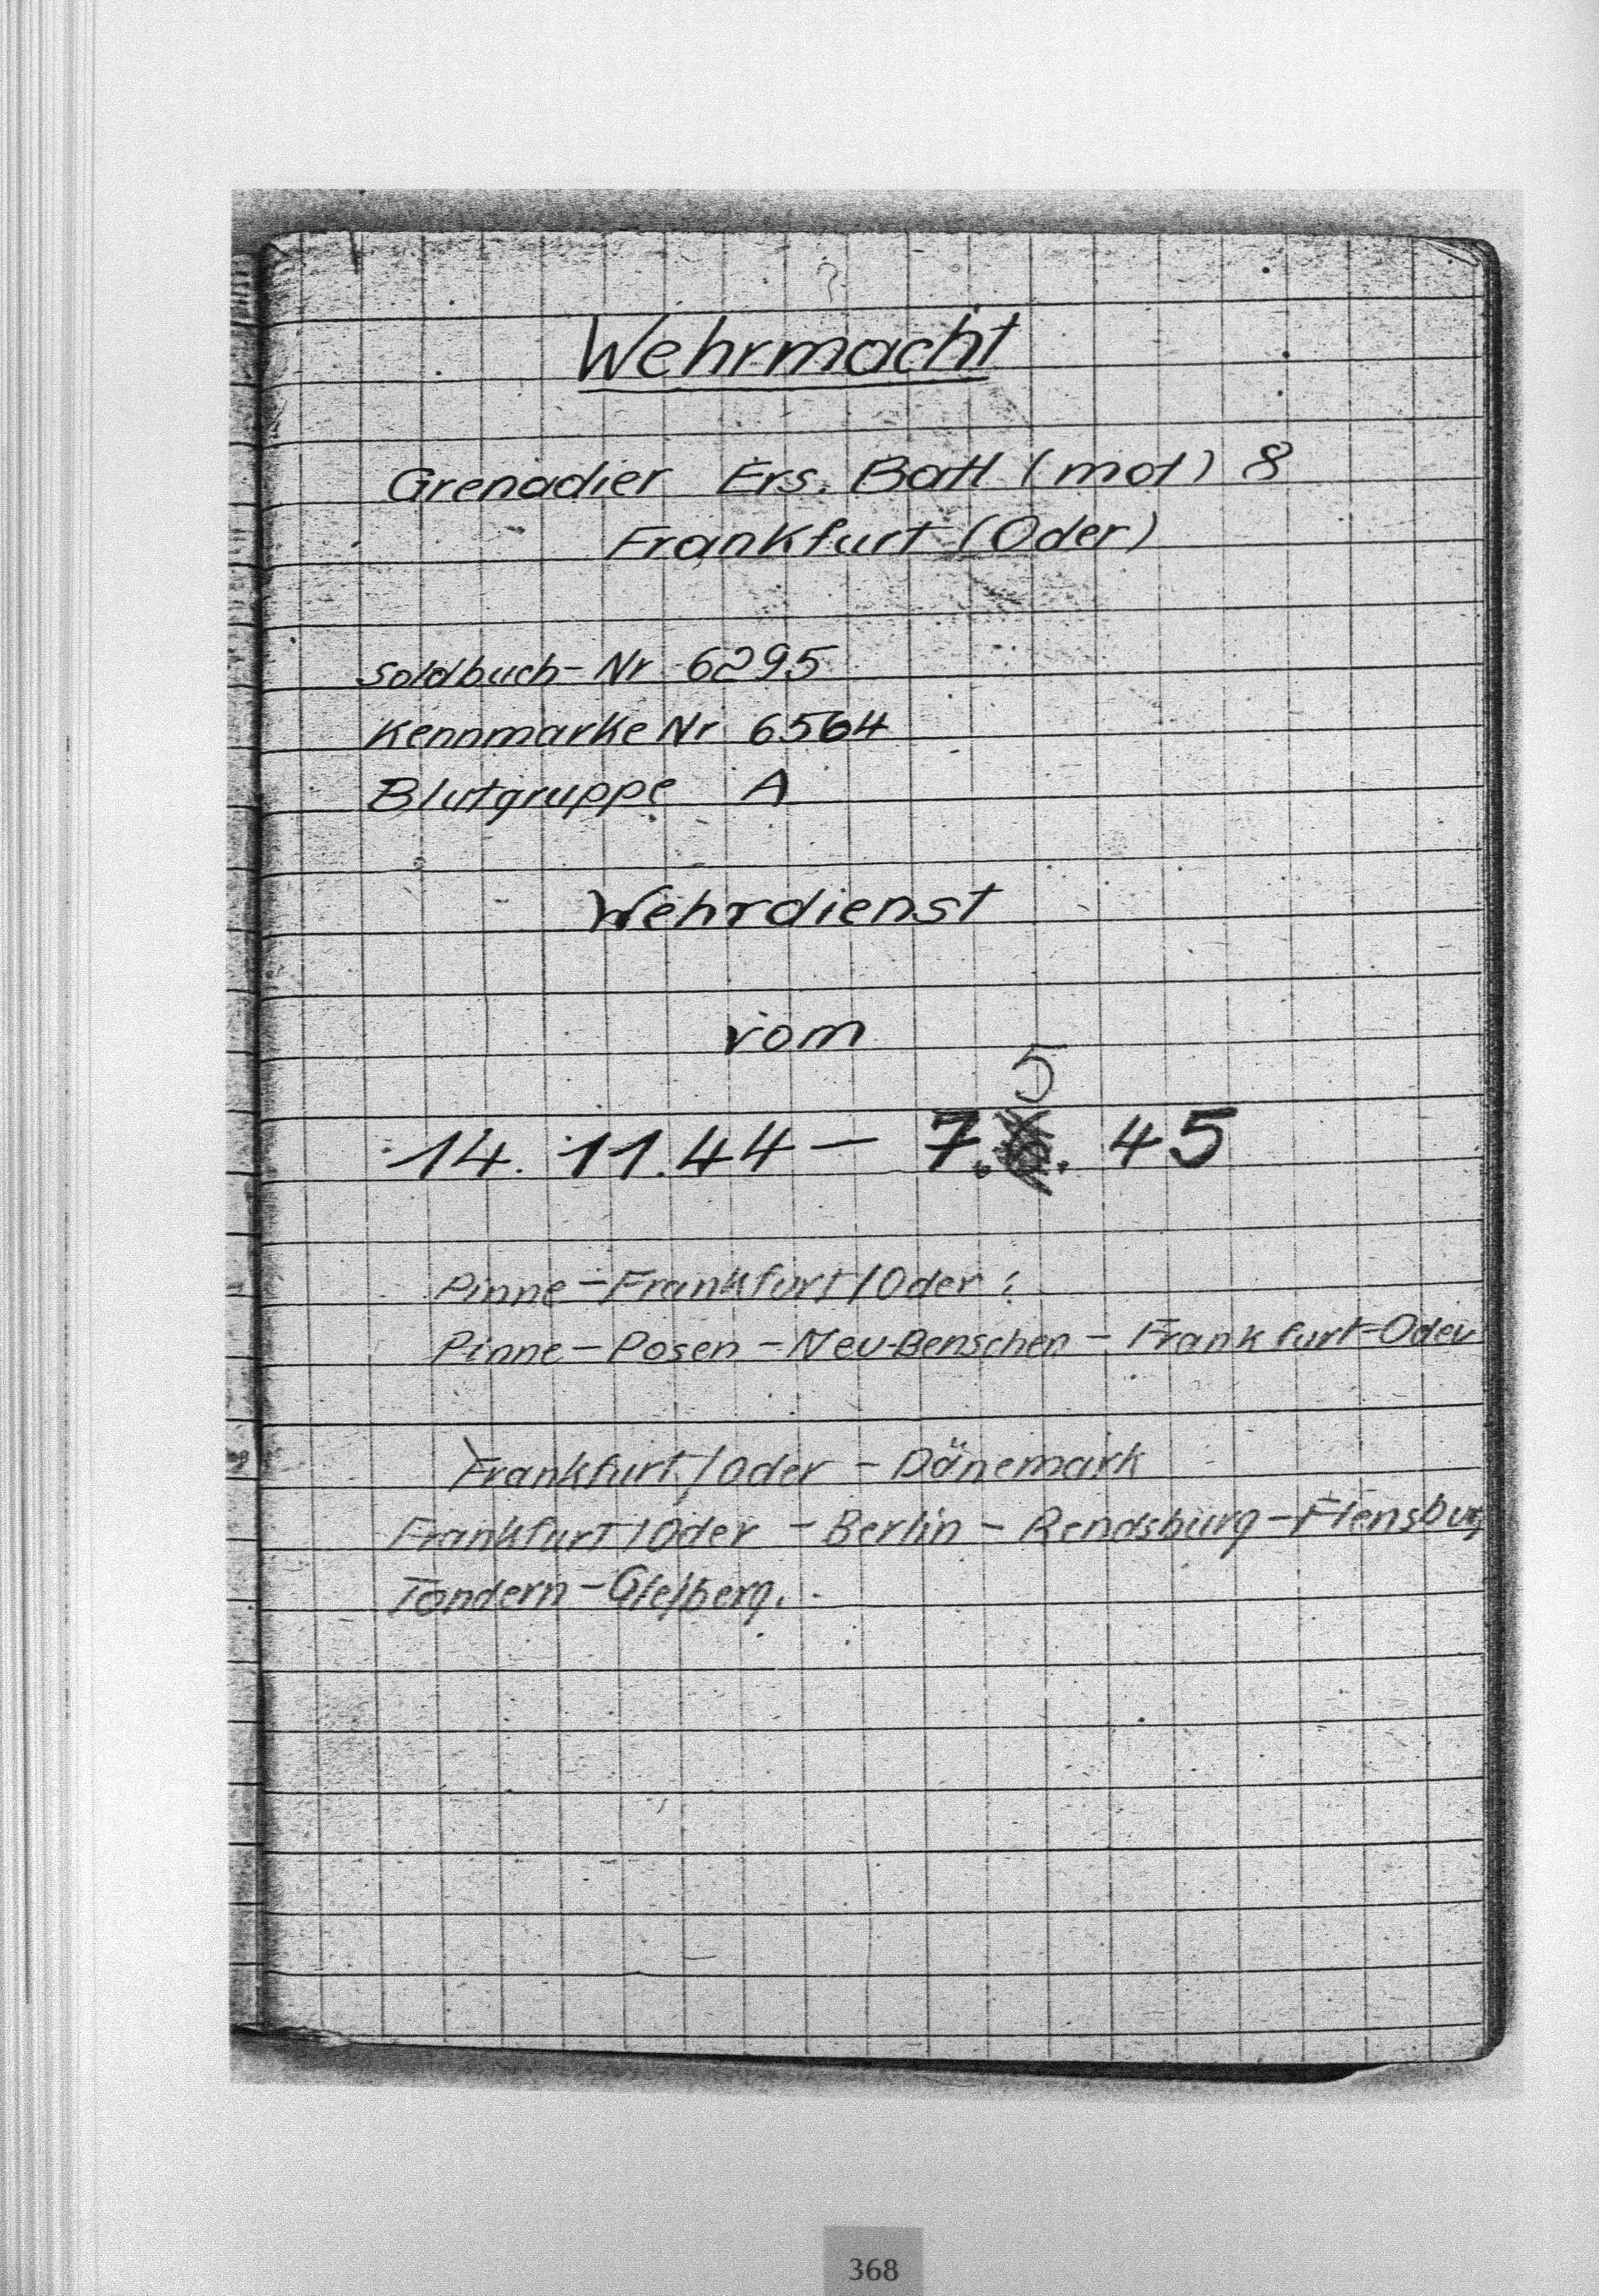 Wehrmacht
Grenadier Ers. Batl (mot) 8
Frankfurt (Oder)
Soldbuch-Nr 6295
Kennmarke Nr 6564
Blutgruppe A
Wehrdienst
vom
5
14. 11. 44 – 7. . 45
Pinne – Frankfurt/Oder:
Pinne – Posen – Neu-Benschen – Frankfurt-Oder
Frankfurt/Oder – Dänemark
Frankfurt/Oder – Berlin – Rendsburg – Flensburg
Tondern –
368